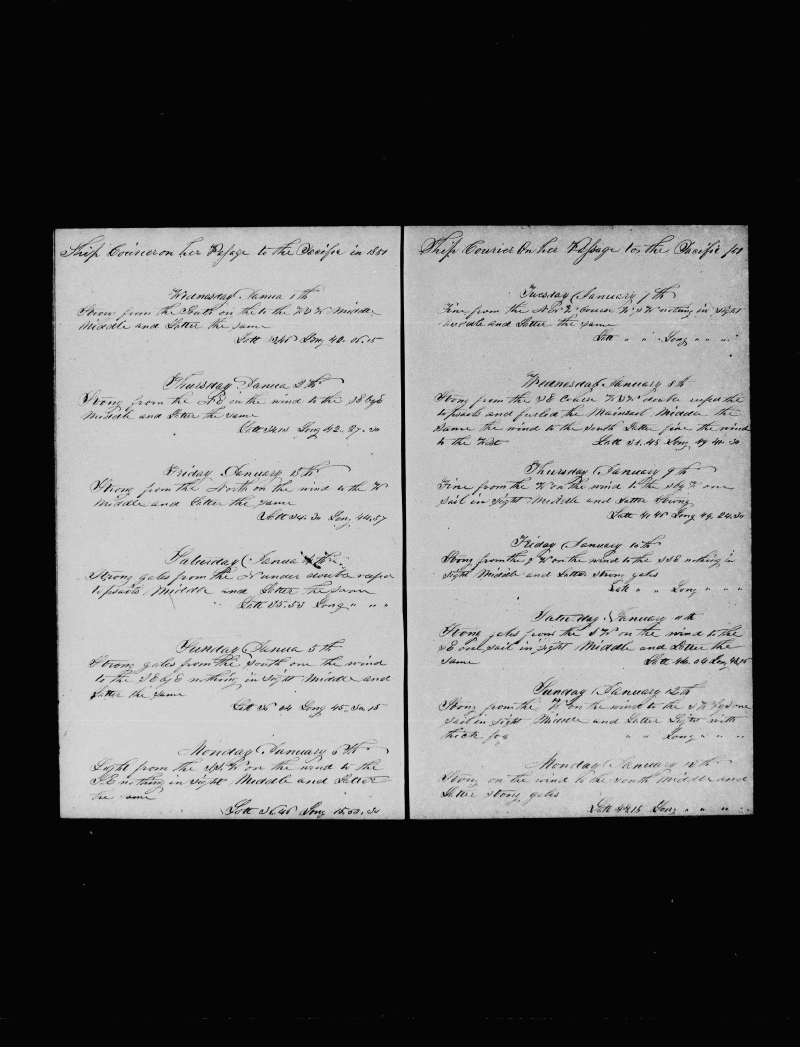 Ship Courier on her Passage to the Pacific in 1851
Wednesday Janua 1th
Strong from the South on the to the W Middle
Middle and Latter the same
Latt 33,46 Long 40-06-15
Thursday Janua 2th
Strong from the S.E on the wind to the SE by E
Middle and Latter the same
Latt Long 42-27-30
Friday January 3th
Strong from the North on the wind to the W
Middle and Latter the same
Latt 34-30 Long 44,57
Saturday Janua 4th
Strong gales from the N under double reefed
topsails Middle and Latter the same
Latt 35-53 Long " " "
Sunday Janua 5th
Strong gales from the South one the wind
to the SE by E nothing in sight Middle and
Latter the same
Latt 36 04 Long 45-30 15
Monday January 6th
Light from the on the wind to the
S.E nothing in sight Middle and Latter
the same
Latt 36,46 Long
Ship Courier On her Passage to the Pacific
Tuesday January 7th
Fine from the Course nothing in sight
Middle and Latter the same
Latt " " Long " " "
Wednesday January 8th
Strong from the SE Course double reefed the
topsails and furled the Mainsail Middle the
same the wind to the South Latter fine the wind
to the West Latt Long 49
Thursday January 9th
Fine from the W on the wind to the one
sail in sight Middle and Latter Strong
Latt 41 46 Long 49, 24,30
Friday January 10th
Strong from the on the wind to the SSE nothing in
sight Middle and Latter strong gales
Latt " " Long " " "
Saturday January 11th
Strong gales from the SW on the wind to the
SE one sail in sight Middle and Latter the
same Latt 44.06 Long
Sunday January 12th
Strong from the W on the wind to the one
sail in sight Middle and Latter with
thick fog " " Long " " "
Monday January 13th
Strong on the wind to the South Middle and
Latter strong gales
Latt 44,15 Long " " "